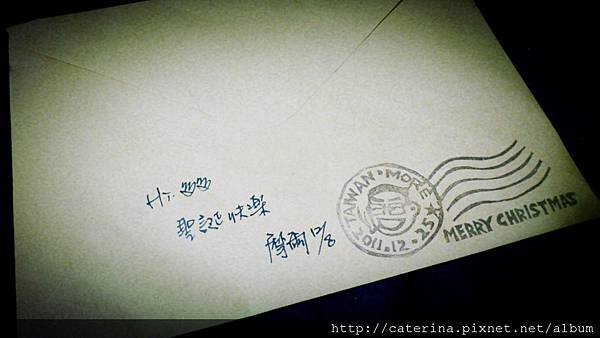 Hi.
聖誕快樂
摩爾 12/8
TAIWAN · MORE
2011.12.25
MERRY CHRISTMAS
http://caterina.pixnet.net/album